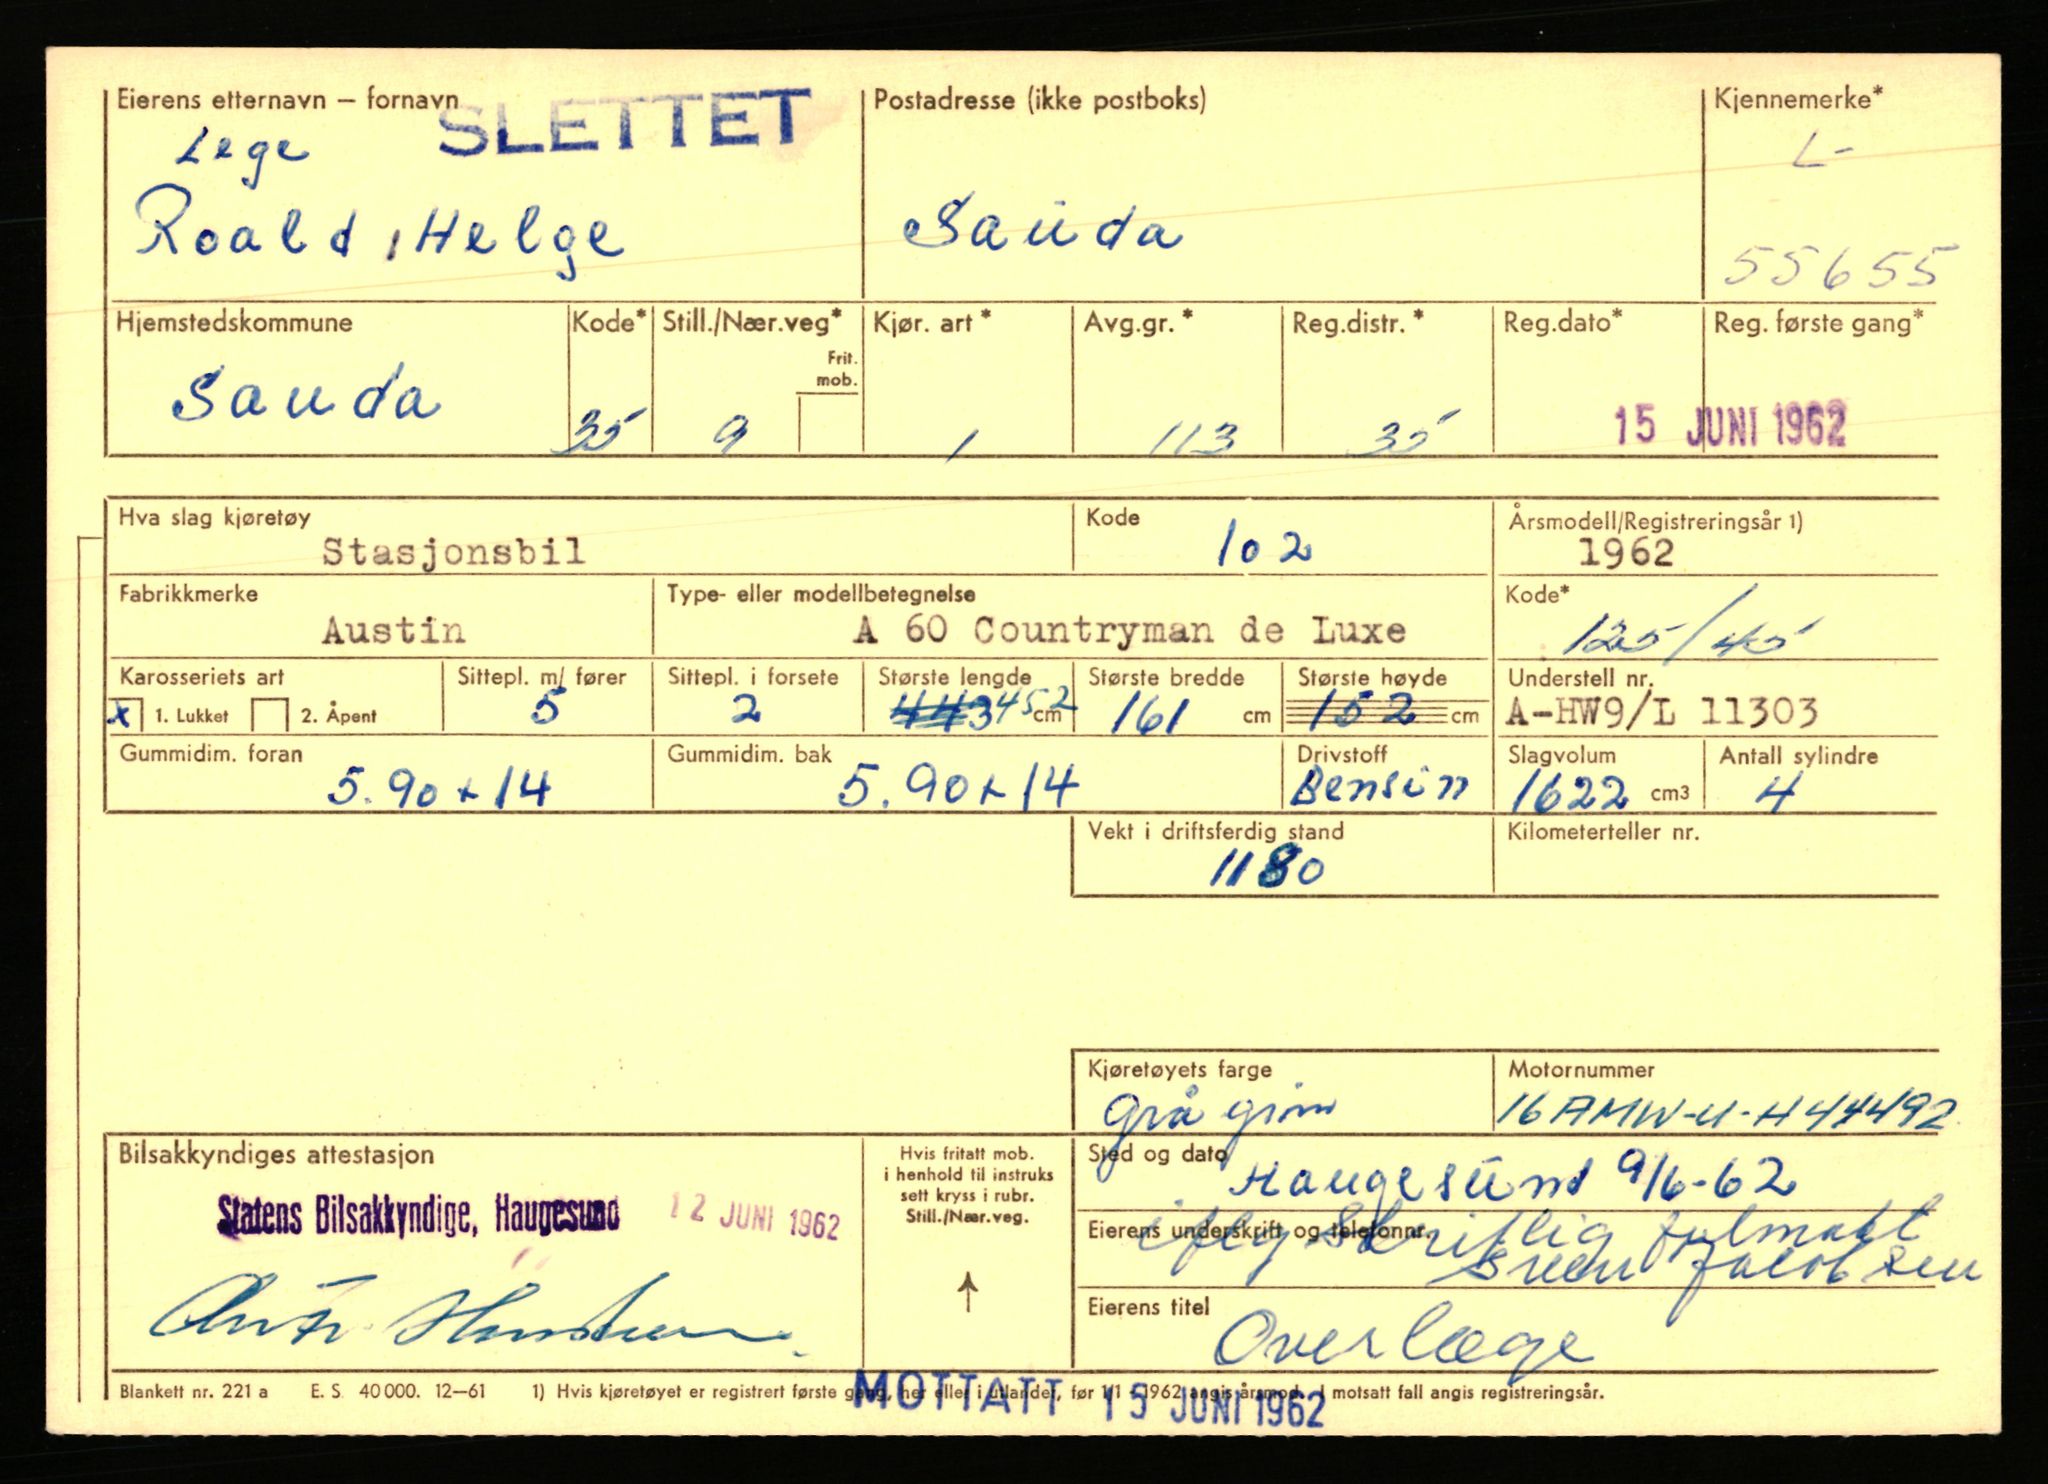 Eierens etternavn – fornavn SLETTET Postadresse (ikke postboks) Kjennemerke*
Lege L-
Roald, Helge Sauda 55655
Hjemstedskommune Kode* Still./Nær.veg* Kjør. art* Avg.gr.* Reg.distr.* Reg.dato* Reg. første gang*
Frit.
mob.
Sauda 35 9 1 113 35 15 JUNI 1962
Hva slag kjøretøy Kode Årsmodell/Registreringsår 1)
Stasjonsbil 102 1962
Fabrikkmerke Type- eller modellbetegnelse Kode*
Austin A 60 Countryman de Luxe 125/45
Karosseriets art Sittepl. m/ fører Sittepl. i forsete Største lengde Største bredde Største høyde Understell nr.
x 1. Lukket 2. Åpent 5 2 443 452 cm 161 cm 152 cm A-HW9/L 11303
Gummidim. foran Gummidim. bak Drivstoff Slagvolum Antall sylindre
5.90 x 14 5.90 x 14 Bensin 1622 cm3 4
Vekt i driftsferdig stand Kilometerteller nr.
1180
Kjøretøyets farge Motornummer
Grå grøn 16AMW-U-H44492
Bilsakkyndiges attestasjon Hvis fritatt mob. i henhold til instruks sett kryss i rubr. Still./Nær.veg. Sted og dato
Haugesund 9/6-62
Statens Bilsakkyndige, Haugesund 12 JUNI 1962
Eierens underskrift og telefonnr.
ifølg skriftlig fulmakt
Svein Jacobsen
Eierens titel
Overlæge
Blankett nr. 221 a E. S. 40 000. 12–61 1) Hvis kjøretøyet er registrert første gang, her eller i utlandet, før 1/1 - 1962 angis årsmod. I motsatt fall angis registreringsår.
MOTTATT 15 JUNI 1962